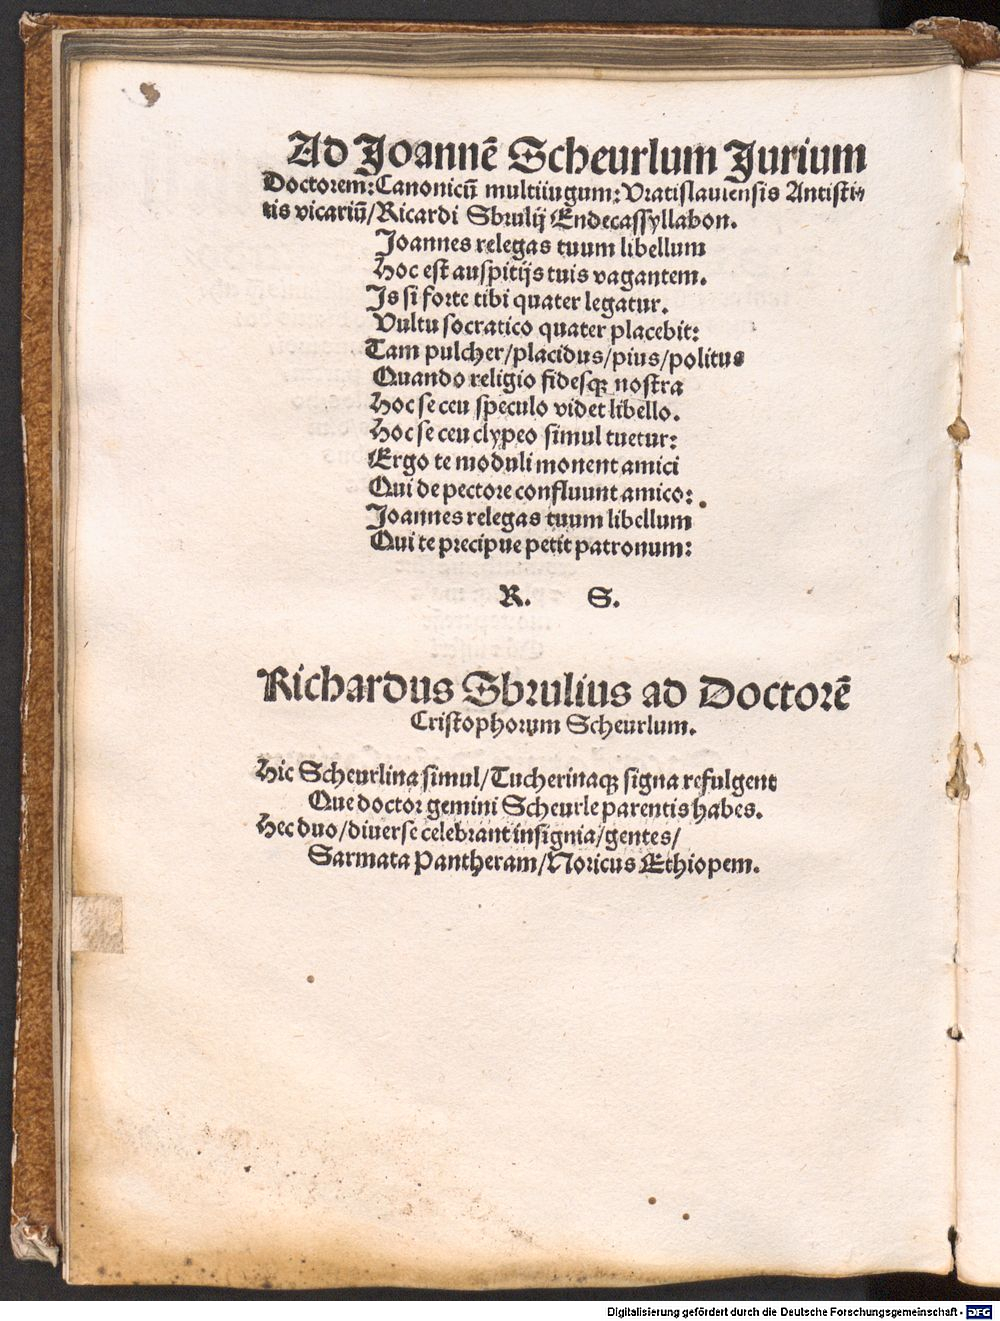 Ad Joannē Scheurlum Jurium
Doctorem: Canonicū multiiugum: Vratislauiensis Antisti-
tis vicariū/ Ricardi Sbrulij Endecassyllabon.
Joannes relegas tuum libellum
Hoc est auspitijs tuis vagantem.
Is si forte tibi quater legatur.
Vultu socratico quater placebit:
Tam pulcher/ placidus/ pius/ politus
Quando religio fidesqꝫ nostra
Hoc se ceu speculo videt libello.
Hoc se ceu clypeo simul tuetur:
Ergo te moduli monent amici
Qui de pectore confluunt amico:
Joannes relegas tuum libellum
Qui te precipue petit patronum:
R. S.
Richardus Sbrulius ad Doctorē
Cristophorum Scheurlum.
Hic Scheurlina simul/ Tucherinaqꝫ signa refulgent
Que doctor gemini Scheurle parentis habes.
Hec duo/ diuerse celebrant insignia/ gentes/
Sarmata Pantheram/ Noricus Ethiopem.
Digitalisierung gefördert durch die Deutsche Forschungsgemeinschaft - DFG